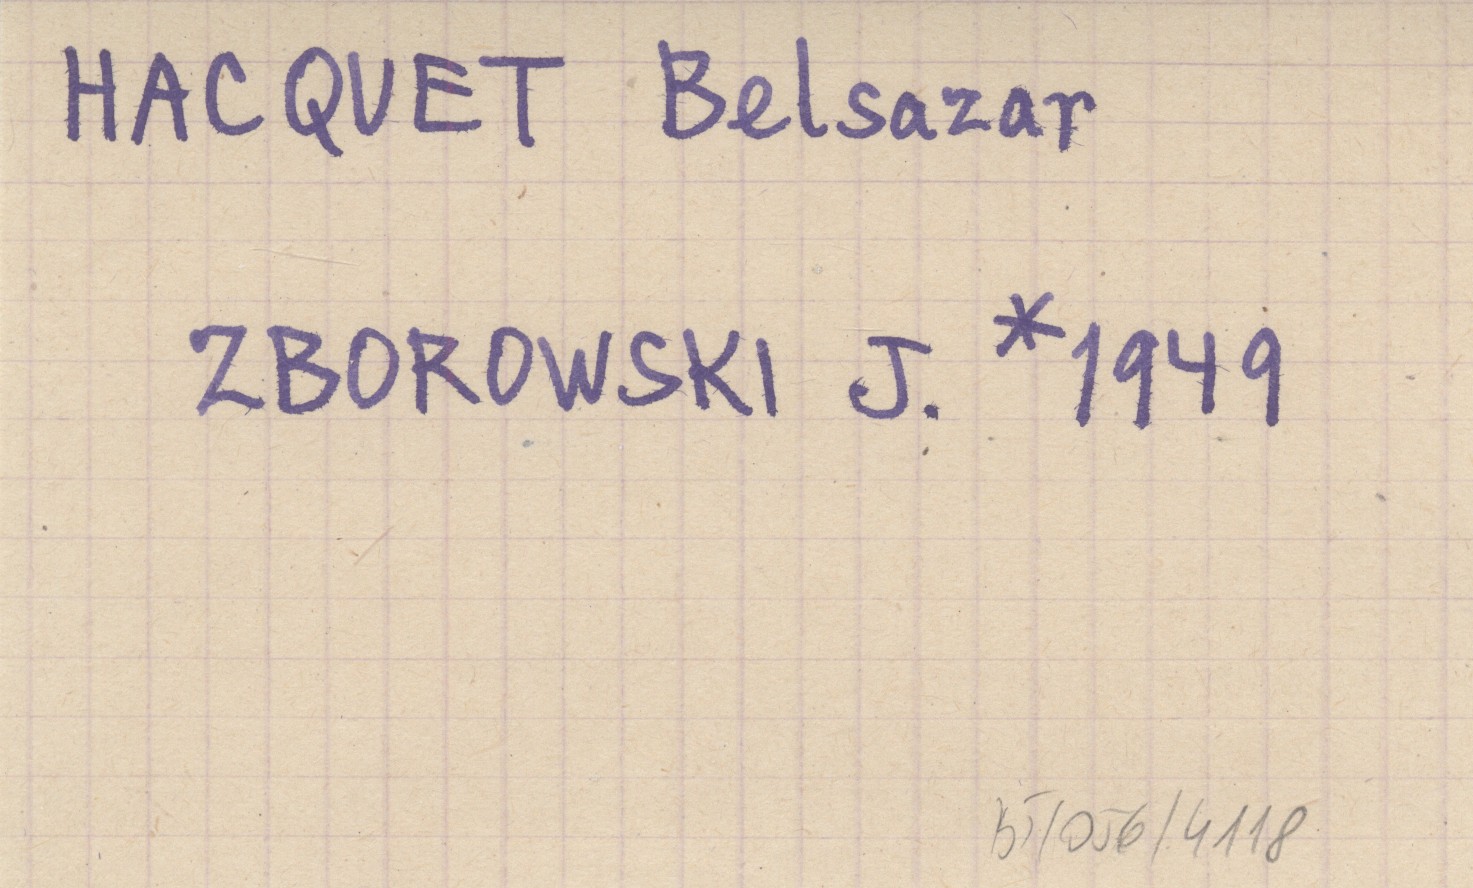 HACQUET Belsazar
ZBOROWSKI J. *1949
BT/056/4118